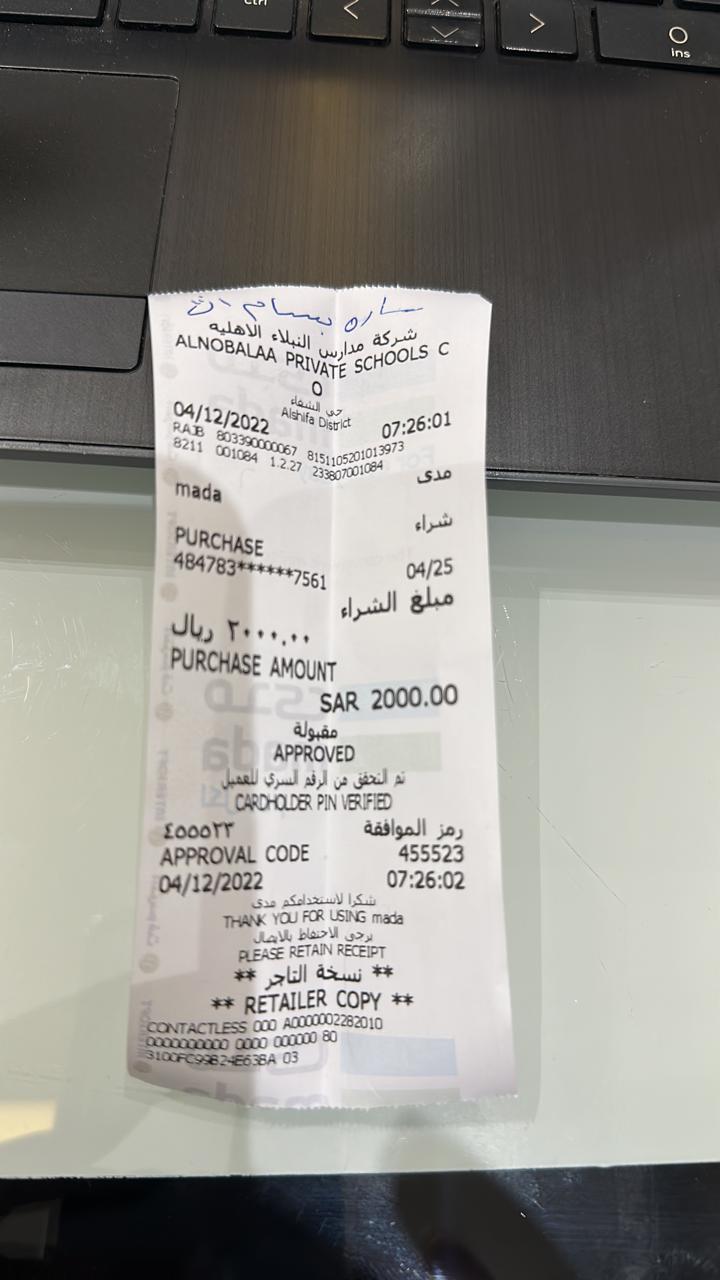 ساره بسام
شركة مدارس النبلاء الاهليه
ALNOBALAA PRIVATE SCHOOLS C
O
حي الشفاء
Alshifa District
04/12/2022 07:26:01
RAJB 803390000067 8151105201013973
8211 001084 1.2.27 233807001084
مدى
mada
شراء
PURCHASE
484783******7561 04/25
مبلغ الشراء
٢٠٠٠.٠٠ ريال
PURCHASE AMOUNT
SAR 2000.00
مقبولة
APPROVED
تم التحقق من الرقم السري للعميل
CARDHOLDER PIN VERIFIED
رمز الموافقة ٤٥٥٥٢٣
APPROVAL CODE 455523
04/12/2022 07:26:02
شكرا لاستخدامكم مدى
THANK YOU FOR USING mada
يرجى الاحتفاظ بالايصال
PLEASE RETAIN RECEIPT
** نسخة التاجر **
** RETAILER COPY **
CONTACTLESS 000 A0000002282010
0000000000 0000 000000 80
3100FC99B24E63BA 03
Ctrl
ins